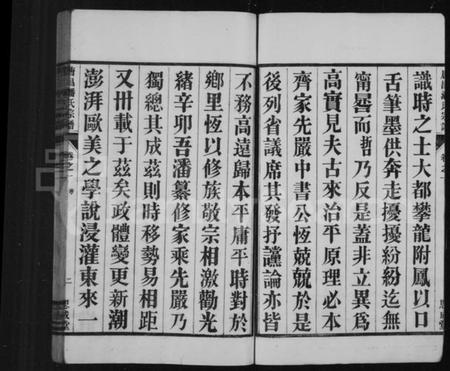 識時之士大都攀龍附鳳以口
舌筆墨供奔走擾擾紛紛迄無
甯晷而哲乃反是蓋非立異爲
高實見夫古來治平原理必本
齊家先嚴中書公恆兢兢於是
後列省議席其發抒讜論亦皆
不務高遠歸本平庸平時對於
鄉里恆以修族敬宗相激勸光
緒辛卯吾潘纂修家乘先嚴乃
獨總其成茲則時移勢易相距
又卅載于茲矣政體變更新潮
澎湃歐美之學說浸灌東來一